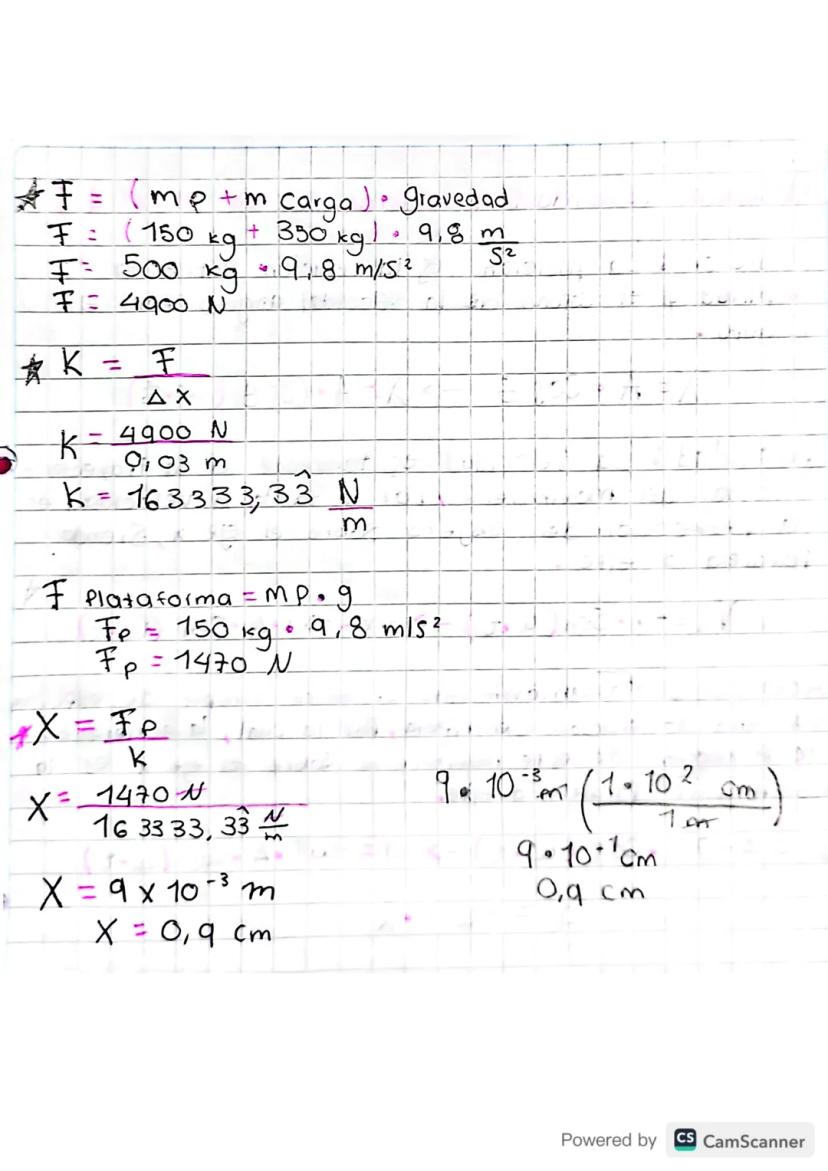 F = (mp + m carga) • gravedad
F = (150 kg + 350 kg) • 9,8 m/s²
F = 500 kg • 9,8 m/s²
F = 4900 N
K = F/Δx
K = 4900 N/0,03 m
K = 163333,33̂ N/m
F Plataforma = mp • g
Fp = 150 kg • 9,8 m/s²
Fp = 1470 N
X = Fp/k
X = 1470 N/163333,33̂ N/m
X = 9 x 10⁻³ m
X = 0,9 cm
9 • 10⁻³ m (1 • 10² cm/1 m)
9 • 10⁻¹ cm
0,9 cm
Powered by CS CamScanner